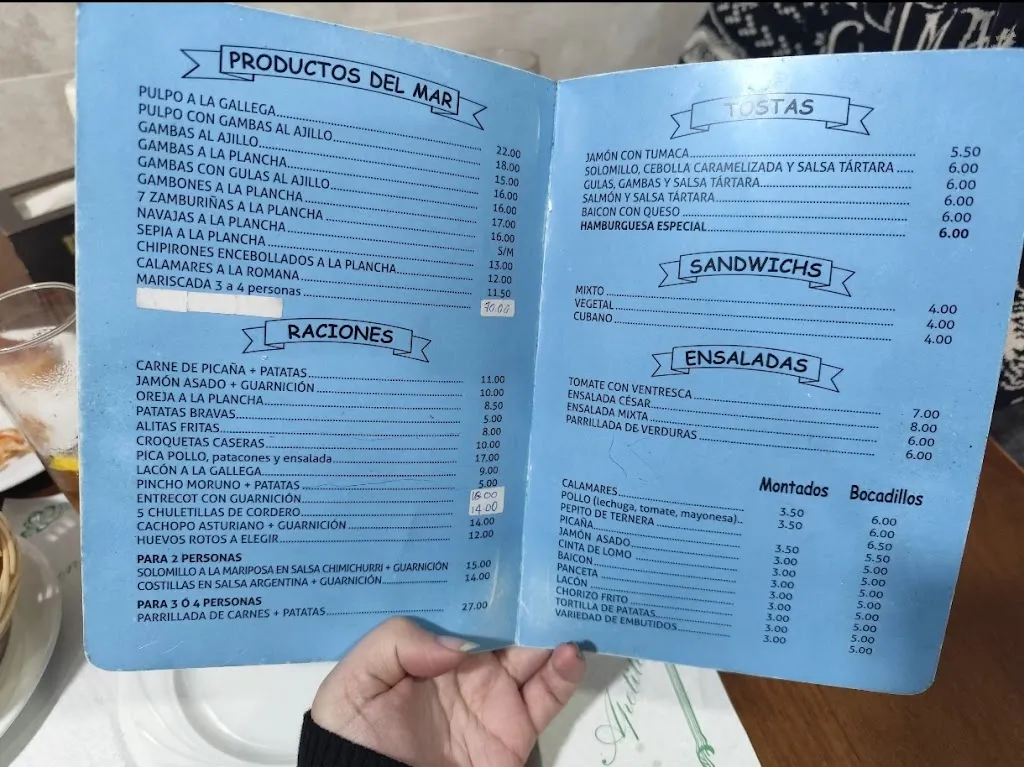 PRODUCTOS DEL MAR
PULPO A LA GALLEGA 22.00
PULPO CON GAMBAS AL AJILLO 18.00
GAMBAS AL AJILLO 15.00
GAMBAS A LA PLANCHA 16.00
GAMBAS CON GULAS AL AJILLO 16.00
GAMBONES A LA PLANCHA 17.00
7 ZAMBURIÑAS A LA PLANCHA 16.00
NAVAJAS A LA PLANCHA S/M
SEPIA A LA PLANCHA 13.00
CHIPIRONES ENCEBOLLADOS A LA PLANCHA 12.00
CALAMARES A LA ROMANA 11.50
MARISCADA 3 a 4 personas 70.00
RACIONES
CARNE DE PICAÑA + PATATAS 11.00
JAMÓN ASADO + GUARNICIÓN 10.00
OREJA A LA PLANCHA 8.50
PATATAS BRAVAS 5.00
ALITAS FRITAS 8.00
CROQUETAS CASERAS 10.00
PICA POLLO, patacones y ensalada 17.00
LACÓN A LA GALLEGA 9.00
PINCHO MORUNO + PATATAS 5.00
ENTRECOT CON GUARNICIÓN
5 CHULETILLAS DE CORDERO 14.00
CACHOPO ASTURIANO + GUARNICIÓN 14.00
HUEVOS ROTOS A ELEGIR 12.00
PARA 2 PERSONAS
SOLOMILLO A LA MARIPOSA EN SALSA CHIMICHURRI + GUARNICIÓN 15.00
COSTILLAS EN SALSA ARGENTINA + GUARNICIÓN 14.00
PARA 3 Ó 4 PERSONAS
PARRILLADA DE CARNES + PATATAS 27.00
TOSTAS
JAMÓN CON TUMACA 5.50
SOLOMILLO, CEBOLLA CARAMELIZADA Y SALSA TÁRTARA 6.00
GULAS, GAMBAS Y SALSA TÁRTARA 6.00
SALMÓN Y SALSA TÁRTARA 6.00
BAICON CON QUESO 6.00
HAMBURGUESA ESPECIAL 6.00
SANDWICHS
MIXTO 4.00
VEGETAL 4.00
CUBANO 4.00
ENSALADAS
TOMATE CON VENTRESCA 7.00
ENSALADA CÉSAR 8.00
ENSALADA MIXTA 6.00
PARRILLADA DE VERDURAS 6.00
Montados Bocadillos
CALAMARES 3.50 6.00
POLLO (lechuga, tomate, mayonesa) 3.50 6.00
PEPITO DE TERNERA 6.50
PICAÑA 3.50 5.50
JAMÓN ASADO 3.00 5.00
CINTA DE LOMO 3.00 5.00
BAICON 3.00 5.00
PANCETA 3.00 5.00
LACÓN 3.00 5.00
CHORIZO FRITO 3.00 5.00
TORTILLA DE PATATAS 3.00 5.00
VARIEDAD DE EMBUTIDOS